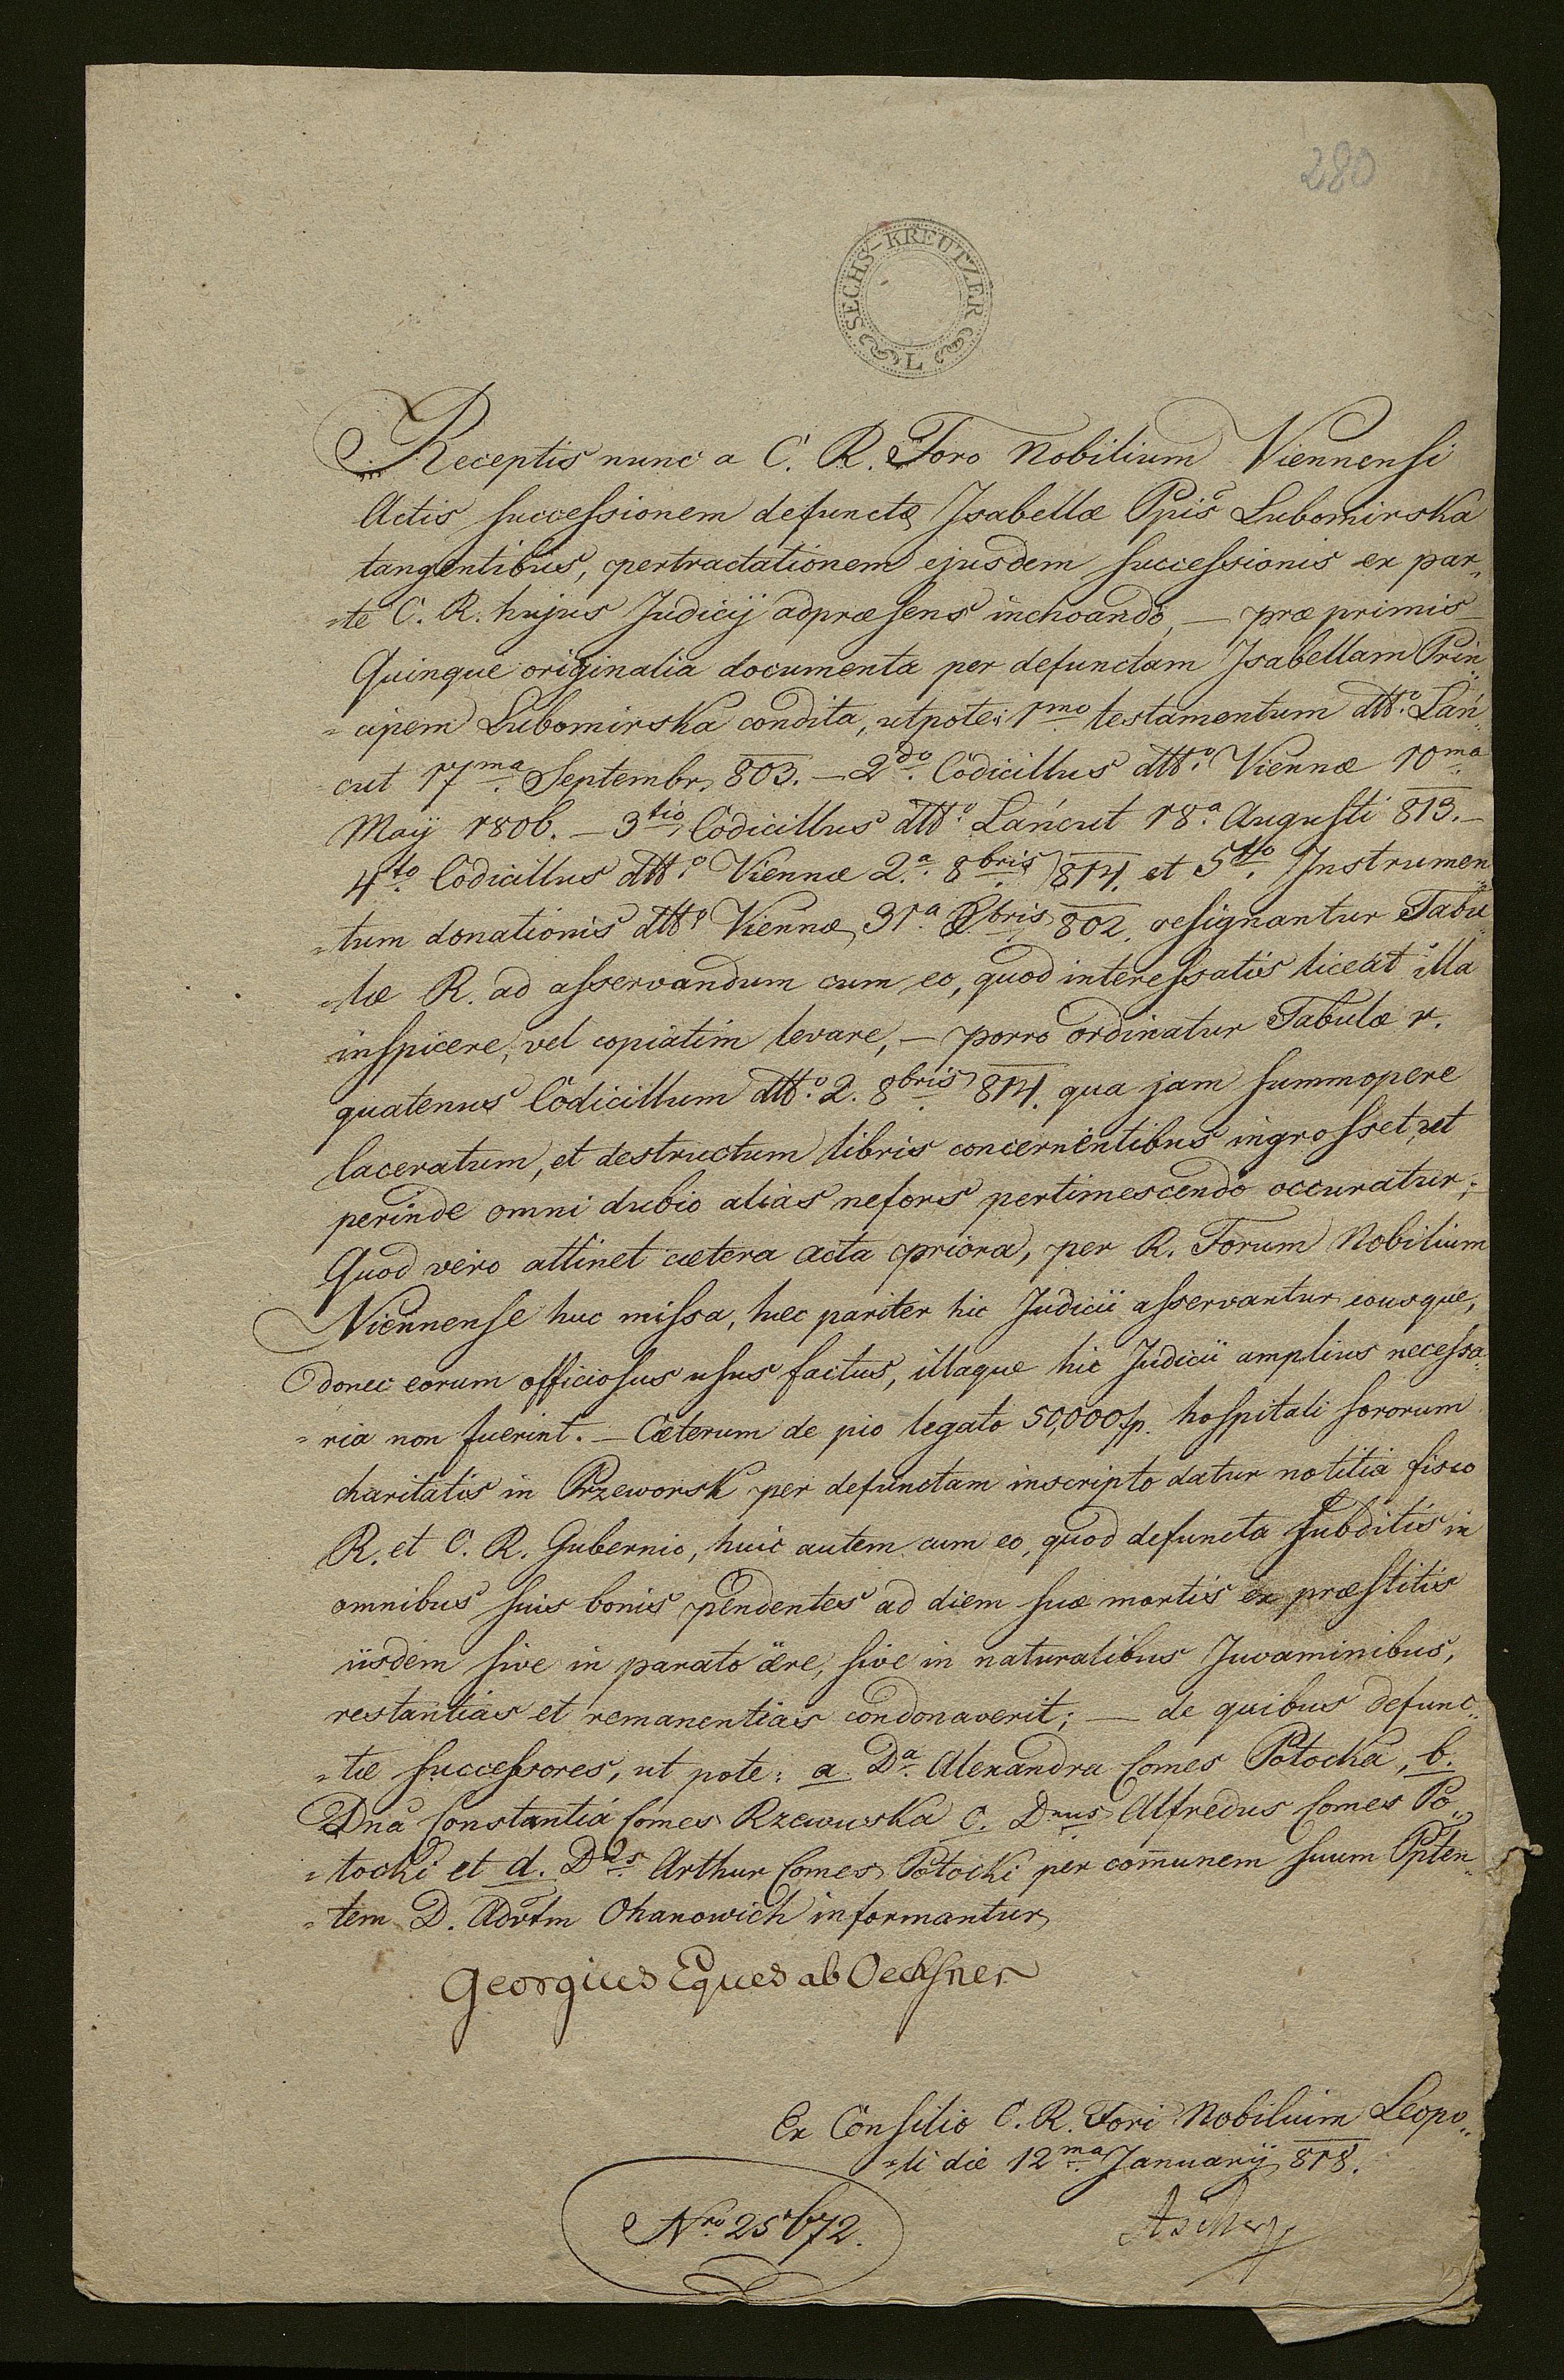 280
SECHS-KREUTZER
L
Receptis nunc a C. R. Foro Nobilium Viennensi
Actis successionem defunctæ Isabellæ Ppis Lubomirska
tangentibus, pertractationem ejusdem successionis ex par„
„te C. R. hujus Judicÿ adpræsens inchoando, — præ primis
Quinque originalia documenta per defunctam Isabellam Prin„
„cipem Lubomirska condita, utpote: 1mo testamentum dtto. Łań„
cut 17ma Septembr 803. — 2do. Codicillus dtto. Viennæ 10ma
Maÿ 1806. — 3tio Codicillus dtto. Łańcut 18a. Augusti 813. —
4to. Codicillus dtto. Viennæ 2a. 8bris 814. et 5to. Instrumen„
„tum donationis dtto Viennæ 31a. Xbris 802. resignantur Tabu„
„læ R. ad asservandum cum eo, quod interessatis liceat illa
inspicere, vel copiatim levare, — porro ordinatur Tabulæ r.
quatenus Codicillum dtto. 2. 8bris 814. qua jam summopere
laceratum, et destructum libris concernentibus ingrosset, ut
perinde omni dubio alias nefors pertimescendo occuratur;
Quod vero attinet cætera acta priora, per R. Forum Nobilium
Viennense huc missa, hæc pariter hic Judicii asservantur eousque,
donec eorum officiosus usus factus, illaque hic Judicii amplius necessa„
„ria non fuerint. — Cæterum de pio legato 50,000 fp. hospitali sororum
charitatis in Przeworsk per defunctam inscripto datur notitia fisco
R. et C. R. Gubernio, huic autem cum eo, quod defuncta subditis in
omnibus suis bonis pendentes ad diem suæ mortis ex præstitis
iisdem sive in parato ære, sive in naturalibus Juvaminibus,
restantias et remanentias condonaverit; — de quibus defunc„
„tæ successores, ut pote: a. Da. Alexandra Comes Potocka, b.
Dna Constantia Comes Rzewuska c. Dnus Alfredus Comes Po„
„tocki et d. Dns Arthur Comes Potocki per comunem suum Ppten„
„tem D. Advtm Ohanowich informantur
Georgius Eques ab Oechsner
Ex Consilio C. R. Fori Nobilium Leopo„
„li die 12ma Januarÿ 818.
Nro 25672.